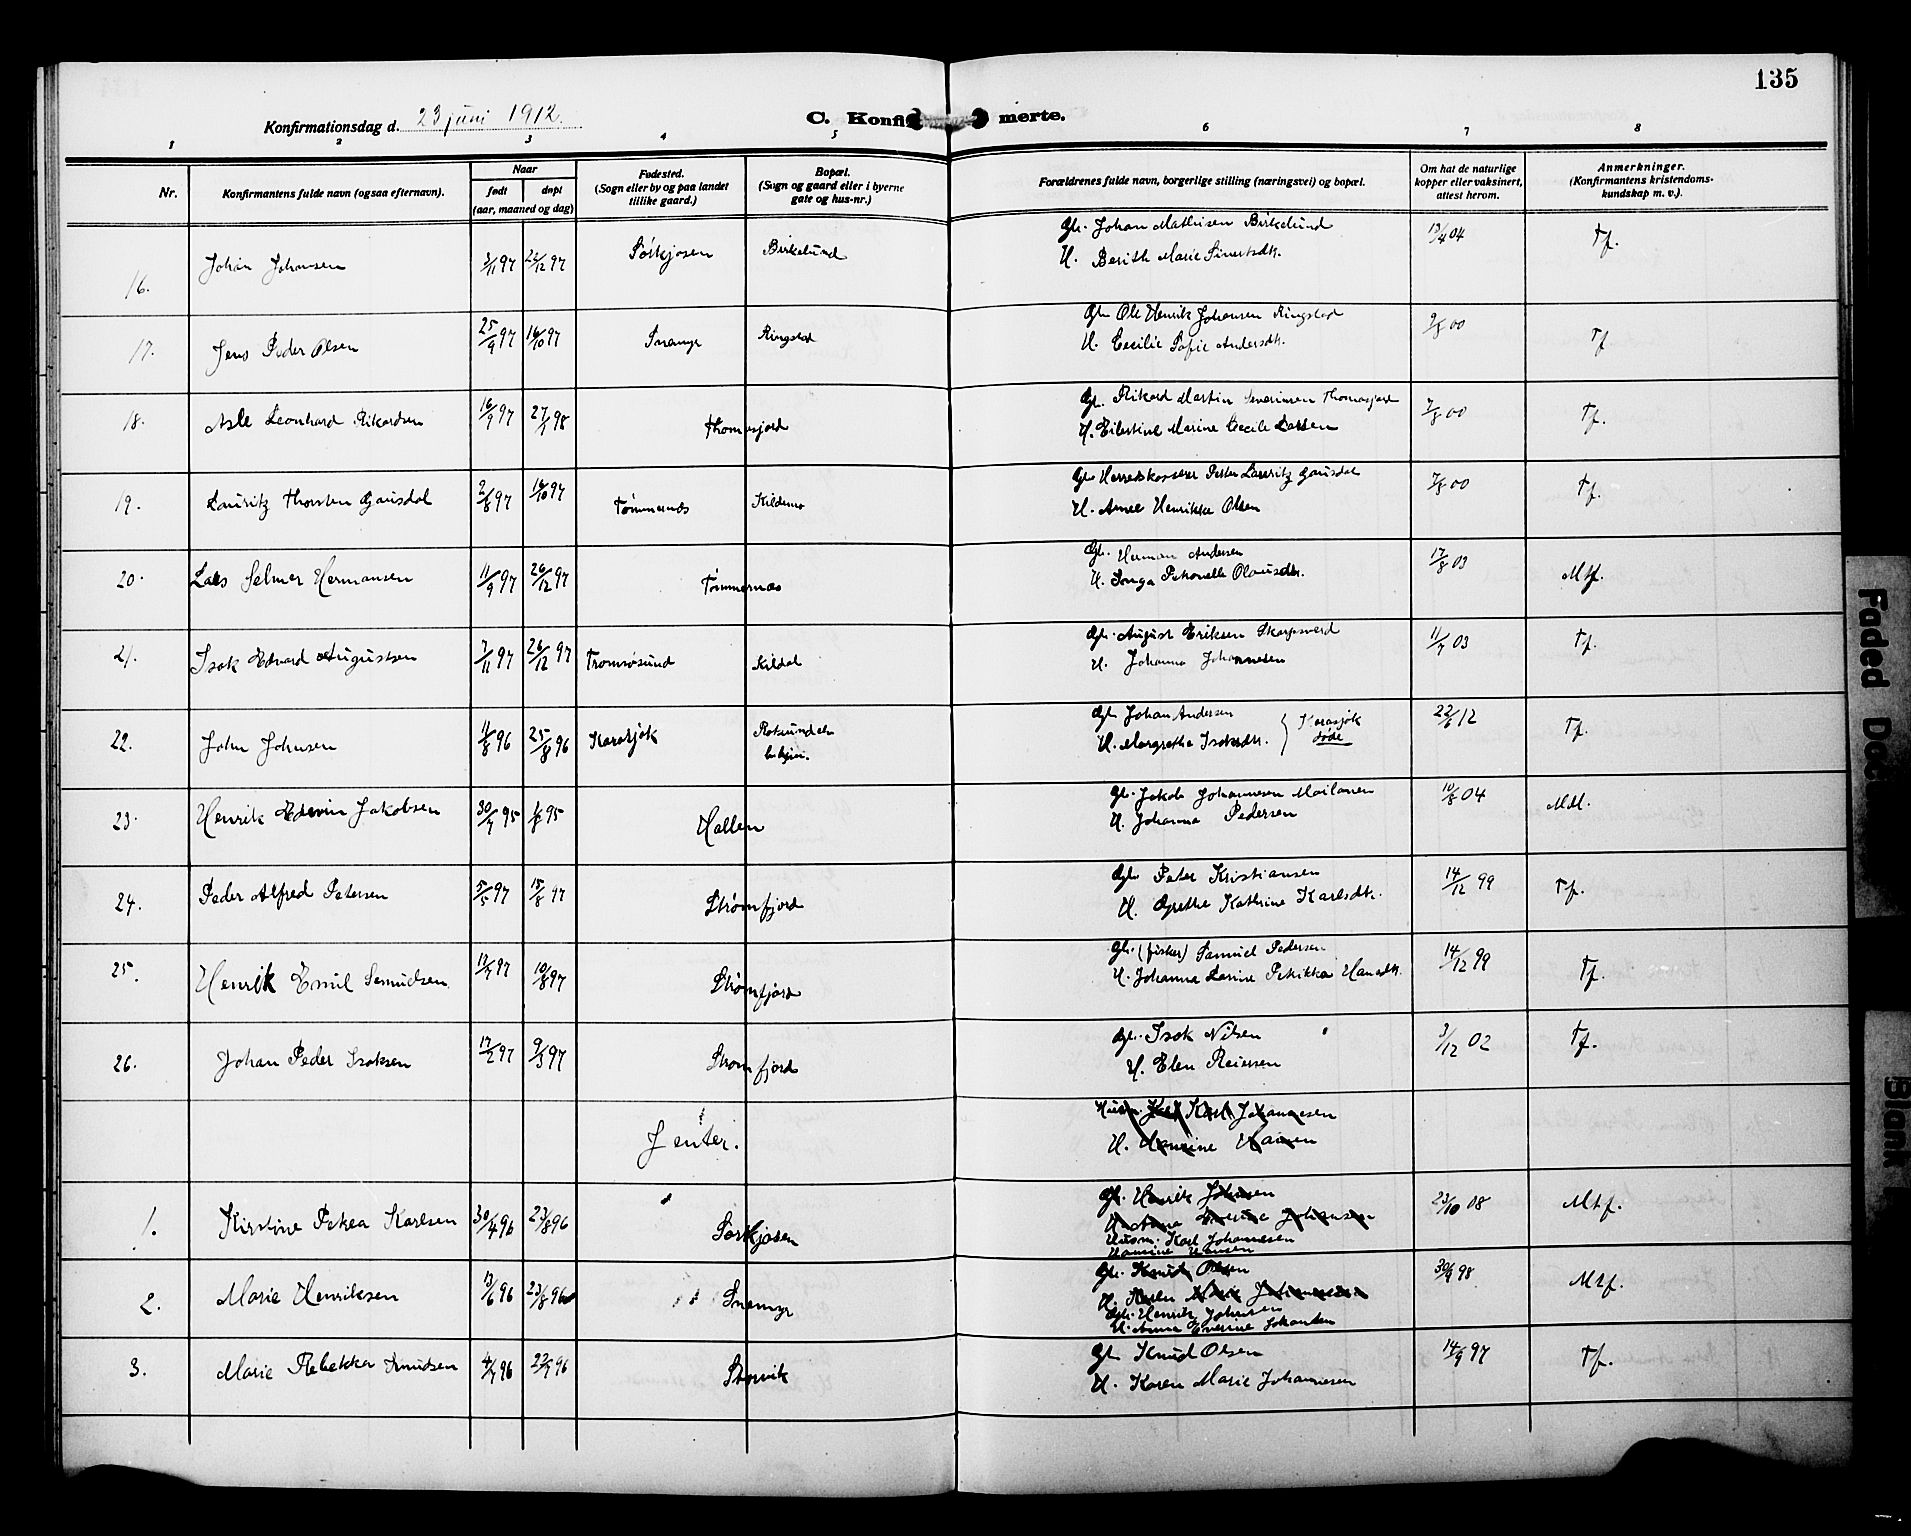 135
Konfirmationsdag d. 23 juni 1912.
C. Konfi merte.
1 2 3 4 5 6 7 8
Nr.
Konfirmantens fulde navn (ogsaa efternavn).
Naar
født døpt
(aar, maaned og dag)
Fødested.
(Sogn eller by og paa landet
tillike gaard.)
Bopæl.
(Sogn og gaard eller i byerne
gate og hus-nr.)
Forældrenes fulde navn, borgerlige stilling (næringsvei) og bopæl.
Om hat de naturlige
kopper eller vaksinert,
attest herom.
Anmerkninger.
(Konfirmantens kristendoms-
kundskap m. v.).
16. Johan Johansen 97 97 Sørkjosen Birkelund
Gb. Johan Mathisen Birkelund 13/4 04 Tf.
H. Berith Marie Sivertsdtr.
17. Jens Peder Olsen 25/9 97 16/10 97 Snemyr Ringstad
Gb. Ole Henrik Johansen Ringstad 00 Tf.
H. Cecilie Sofie Andersdtr.
18. Asle Leonhard Rikardsen 16/9 97 98 Thomasjord
Gb. Rikard Martin Severinsen Thomasjord 00 Tf.
H. Marine Cecile Larsen
19. Lauritz Thorsten Gausdal 97 97 Tømmernes Kildemo
Gb. Herredskasserer Peter Lauritz Gausdal 00 Tf.
H. Anne Henrikke Olsen
20. Lars Selmer Hermansen 11/9 97 26/12 97 Tømmernes
Gb. Herman Andersen 17/8 03 Mtf.
H. Petronelle Olausdtr.
21. Isak Edvard Augustsen 7/11 97 26/12 97 Tromsøsund Kildal
Gb. August Eriksen 11/7 03 Tf.
H. Johanna Johannesen
22. John Johnsen 11/8 96 25/8 96 Karasjok Rotsundelv
Gb. Johan Andersen Karasjok 22/6 12 Tf.
H. Margrethe Isaksdtr. døde
23. Henrik Edevin Jakobsen 30/7 95 95 Hallen
Gb. Jakob Johannesen Mailanen 10/8 04 Mdl.
H. Johanna Pedersen
24. Peder Alfred Petersen 5/5 97 15/8 97 Strømfjord
Gb. Peter Kristiansen 14/12 99 Tf.
H. Grethe Kathrine Karlsdtr.
25. Henrik Emil Samuelsen 97 10/8 97 Strømfjord
Gb. (fisker) Samuel Pedersen 14/12 99 Tf.
H. Johanna Hansdtr.
26. Johan Peder Isaksen 17/2 97 9/3 97 Strømfjord
Gb. Isak Nilsen 3/12 02 Tf.
H. Elen Reiersen
Jenter.
Karl Johannesen
H. Hansen
1. Kirstine Petrea Karlsen 30/4 96 23/8 96 Sørkjosen
Gb. Henrik Johansen 23/10 08 Mtf.
H. Anna Everine Johansen
Husm. Karl Johannesen
Hansine Hansen
2. Marie Henriksen 13/6 96 23/8 96 Snemyr
Gb. Knut Olsen 30/9 98 Mtf.
H. Karen Marie Johannesen
Gb. Henrik Johansen
H. Anna Everine Johansen
3. Marie Rebekka Knudsen 4/7 96 96 Storvik
Gb. Knud Olsen 14/9 97 Tf.
H. Karen Marie Johannesen
Faded Do
Blank